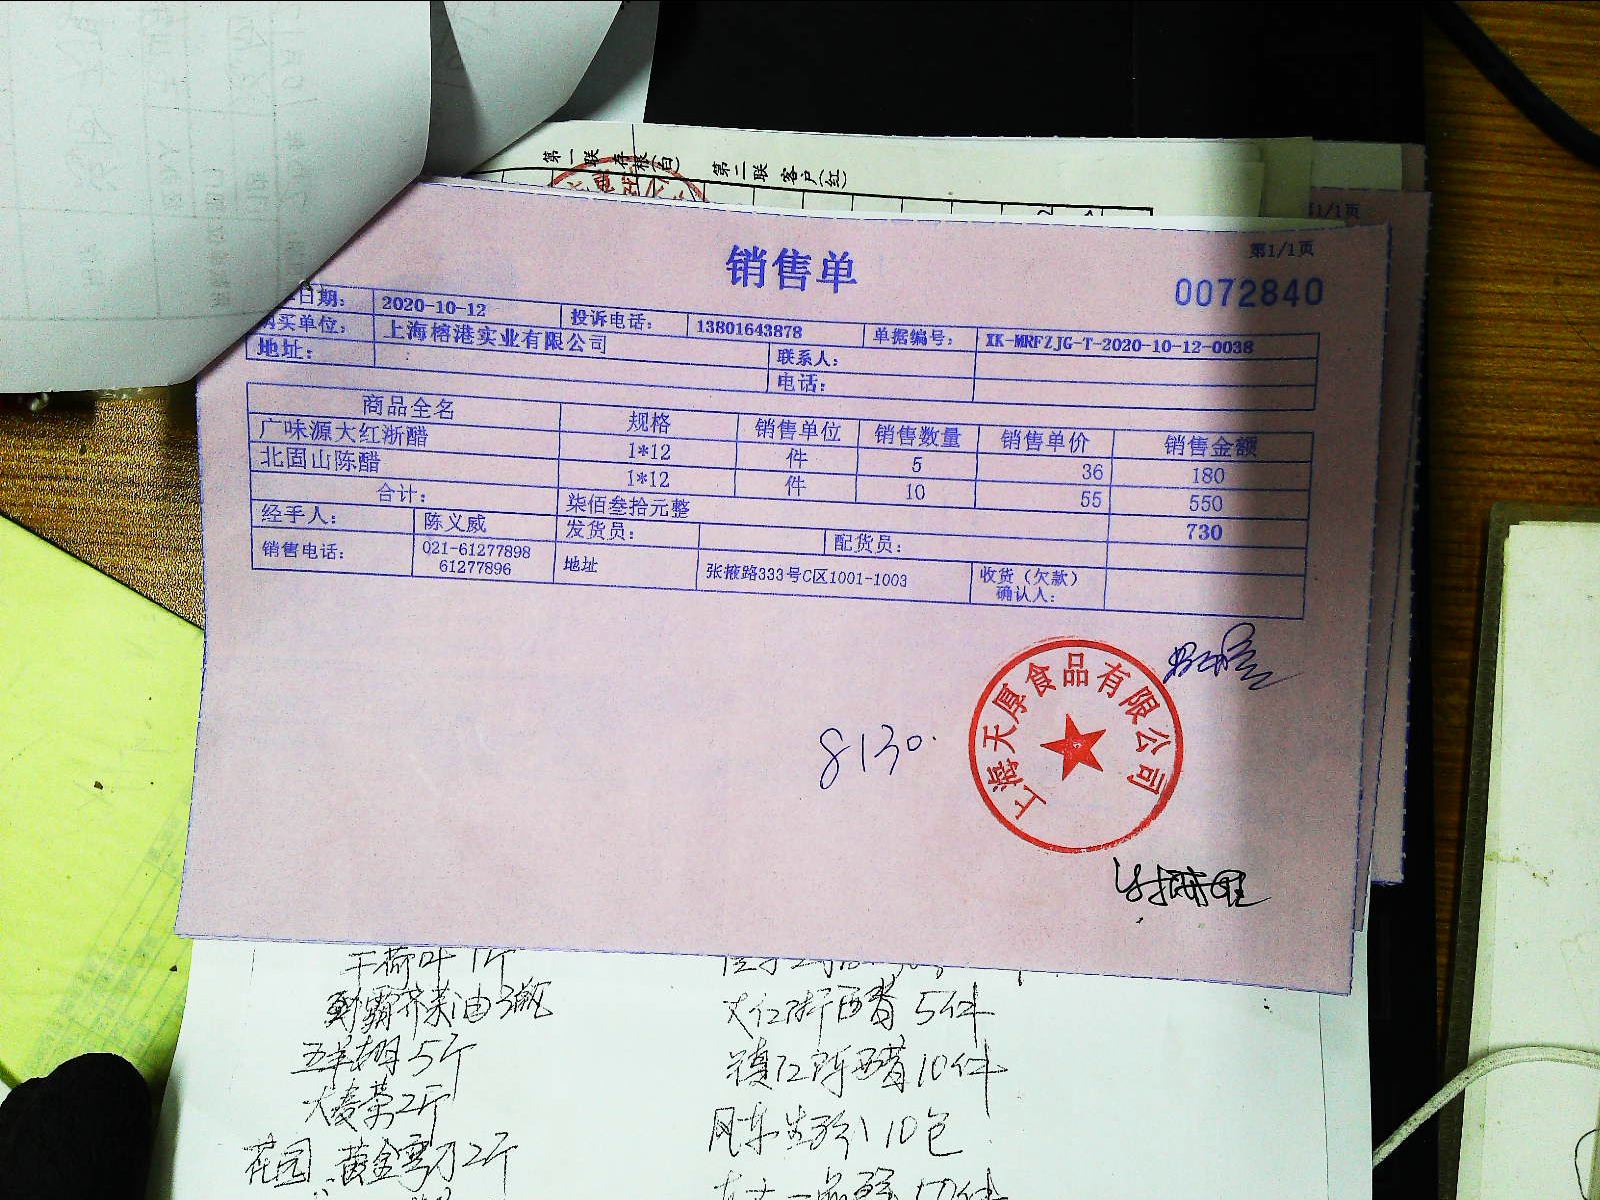 第一联 存根(白) 第二联 客户(红)
第1/1页
销售单
第1/1页
0072840
日期: 2020-10-12 投诉电话: 13801643878 单据编号: XK-MRFZJG-T-2020-10-12-0038
购买单位: 上海榕港实业有限公司 联系人:
地址: 电话:
商品全名 规格 销售单位 销售数量 销售单价 销售金额
广味源大红浙醋 1*12 件 5 36 180
北固山陈醋 1*12 件 10 55 550
合计: 柒佰叁拾元整 730
经手人: 陈义威 发货员: 配货员:
销售电话: 021-61277898 61277896 地址 张掖路333号C区1001-1003 收货（欠款）确认人:
上海天厚食品有限公司
8130.
干荷叶1斤
大红浙醋 5件
镇江陈醋 10件
大麦茶2斤
10包
花园 黄金 2斤